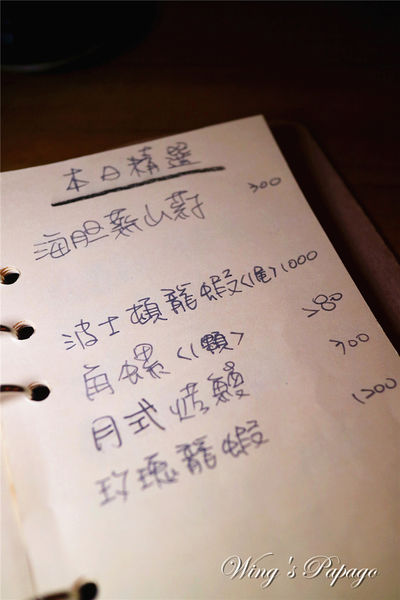 本日精選
海胆蒸山葯 300
波士頓龍蝦<1尾> 1000
角螺<1顆> 280
月式烤鰻 300
玫瑰龍蝦 1200
Wing's Papago